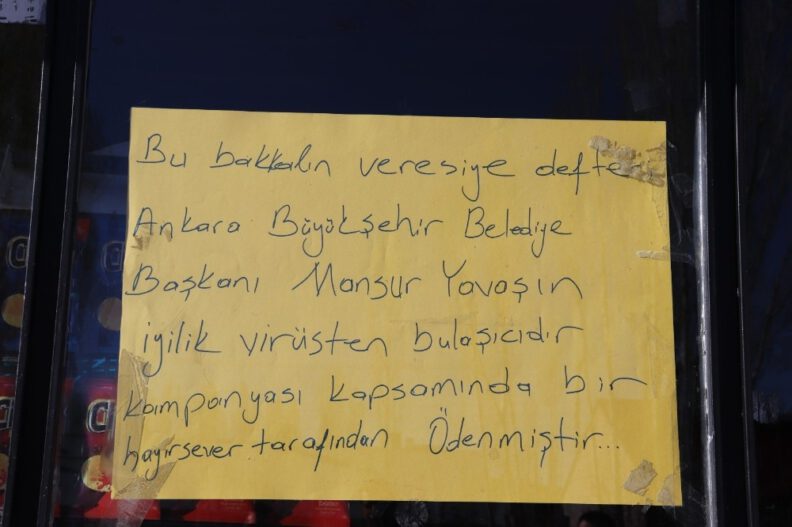 Bu bakkalın veresiye defte
Ankara Büyükşehir Belediye
Başkanı Mansur Yavaşın
iyilik virüsten bulaşıcıdır
kampanyası kapsamında bir
hayırsever tarafından Ödenmiştir...